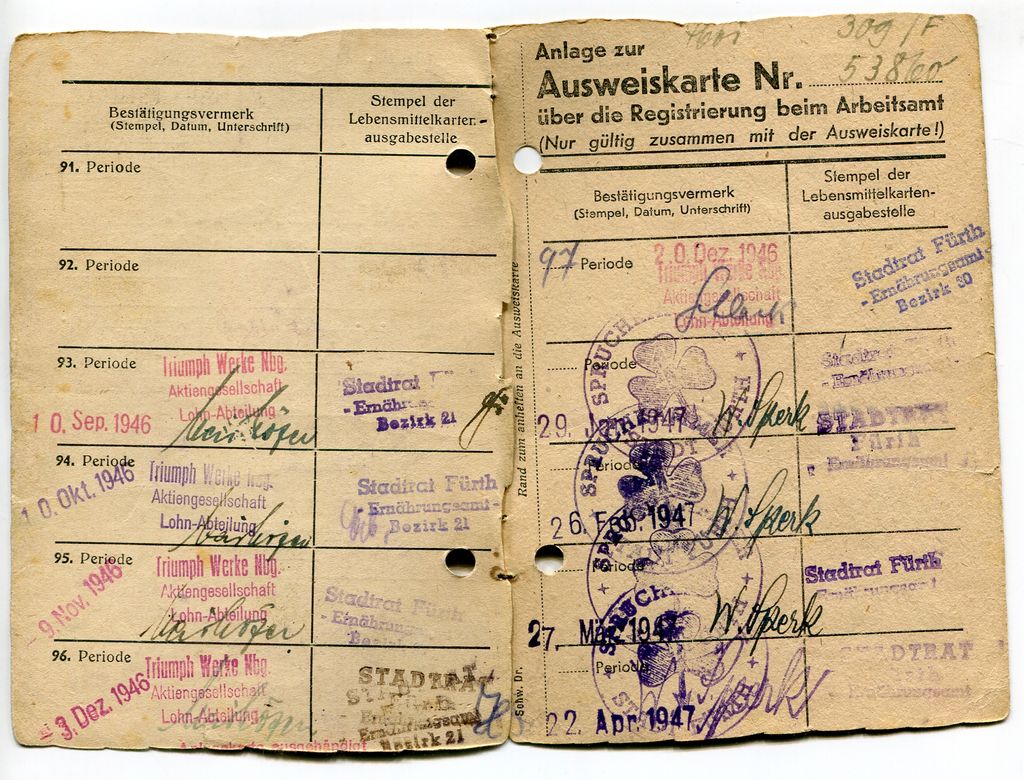 Bestätigungsvermerk
(Stempel, Datum, Unterschrift)
Stempel der
Lebensmittelkarten-
ausgabestelle
91. Periode
92. Periode
93. Periode
Triumph Werke Nbg.
Aktiengesellschaft
Lohn-Abteilung
10. Sep. 1946
Stadtrat
- Ernähr
Bezirk 21
94. Periode
10. Okt. 1946
Triumph Werke Nbg.
Aktiengesellschaft
Lohn-Abteilung
Stadtrat Fürth
- Ernährungsamt -
Bezirk 21
95. Periode
- 9. Nov. 1946
Triumph Werke Nbg.
Aktiengesellschaft
Lohn-Abteilung
Stadtrat Fürth
- Ernährungsamt
Bezirk
96. Periode
- 3. Dez. 1946
Triumph Werke Nbg.
Aktiengesellschaft
Lohn-Abteilung
STADTRAT
Ernährungsamt
Bezirk 21
ausgehändigt
Rand zum anheften an die Ausweiskarte
Schw. Dr.
309/F
Anlage zur
Ausweiskarte Nr. 53860
über die Registrierung beim Arbeitsamt
(Nur gültig zusammen mit der Ausweiskarte!)
Bestätigungsvermerk
(Stempel, Datum, Unterschrift)
Stempel der
Lebensmittelkarten-
ausgabestelle
97 Periode
20. Dez. 1946
Triumph Werke Nbg.
Aktiengesellschaft
Lohn-Abteilung
Stadtrat Fürth
- Ernährungsamt -
Bezirk 30
Periode
29. Jan. 1947
W. Sperk
STADTRAT
Fürth
Ernährungsamt
Periode
26. Feb. 1947
W. Sperk
Periode
27. März 1947
W. Sperk
Stadtrat Fürth
Ernährungsamt
Periode
22. Apr. 1947
STADTRAT
Ernährungsamt